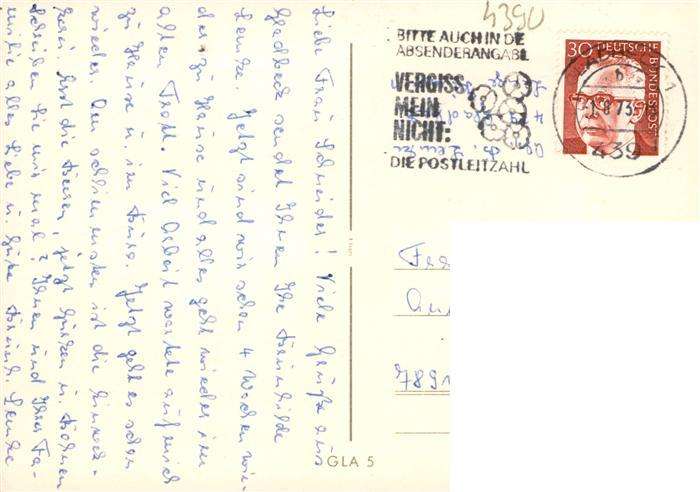 Liebe Frau Schneider! Viele Grüße aus
Gladbeck sendet Ihnen Ihre Brunhilde
Lemke. Jetzt sind wir schon 4 Wochen wie-
der zu Hause und alles geht wieder im
alten Trott. Viel Arbeit wartete auf mich
zu Hause u. im Büro. Jetzt geht es schon
wieder. Am schlimmsten ist die Einmach-
erei. Erst die Beeren, jetzt Gurken u. Bohnen
Schreiben Sie mir mal? Ihnen und Ihrer Fa-
milie alles Liebe u. Gute Brunh. Lemke
GLA 5
4390
BITTE AUCH IN DE
ABSENDERANGABE
VERGISS
MEIN
NICHT:
DIE POSTLEITZAHL
30 DEUTSCHE
BUNDESPOST
8.73
439
Fra
789